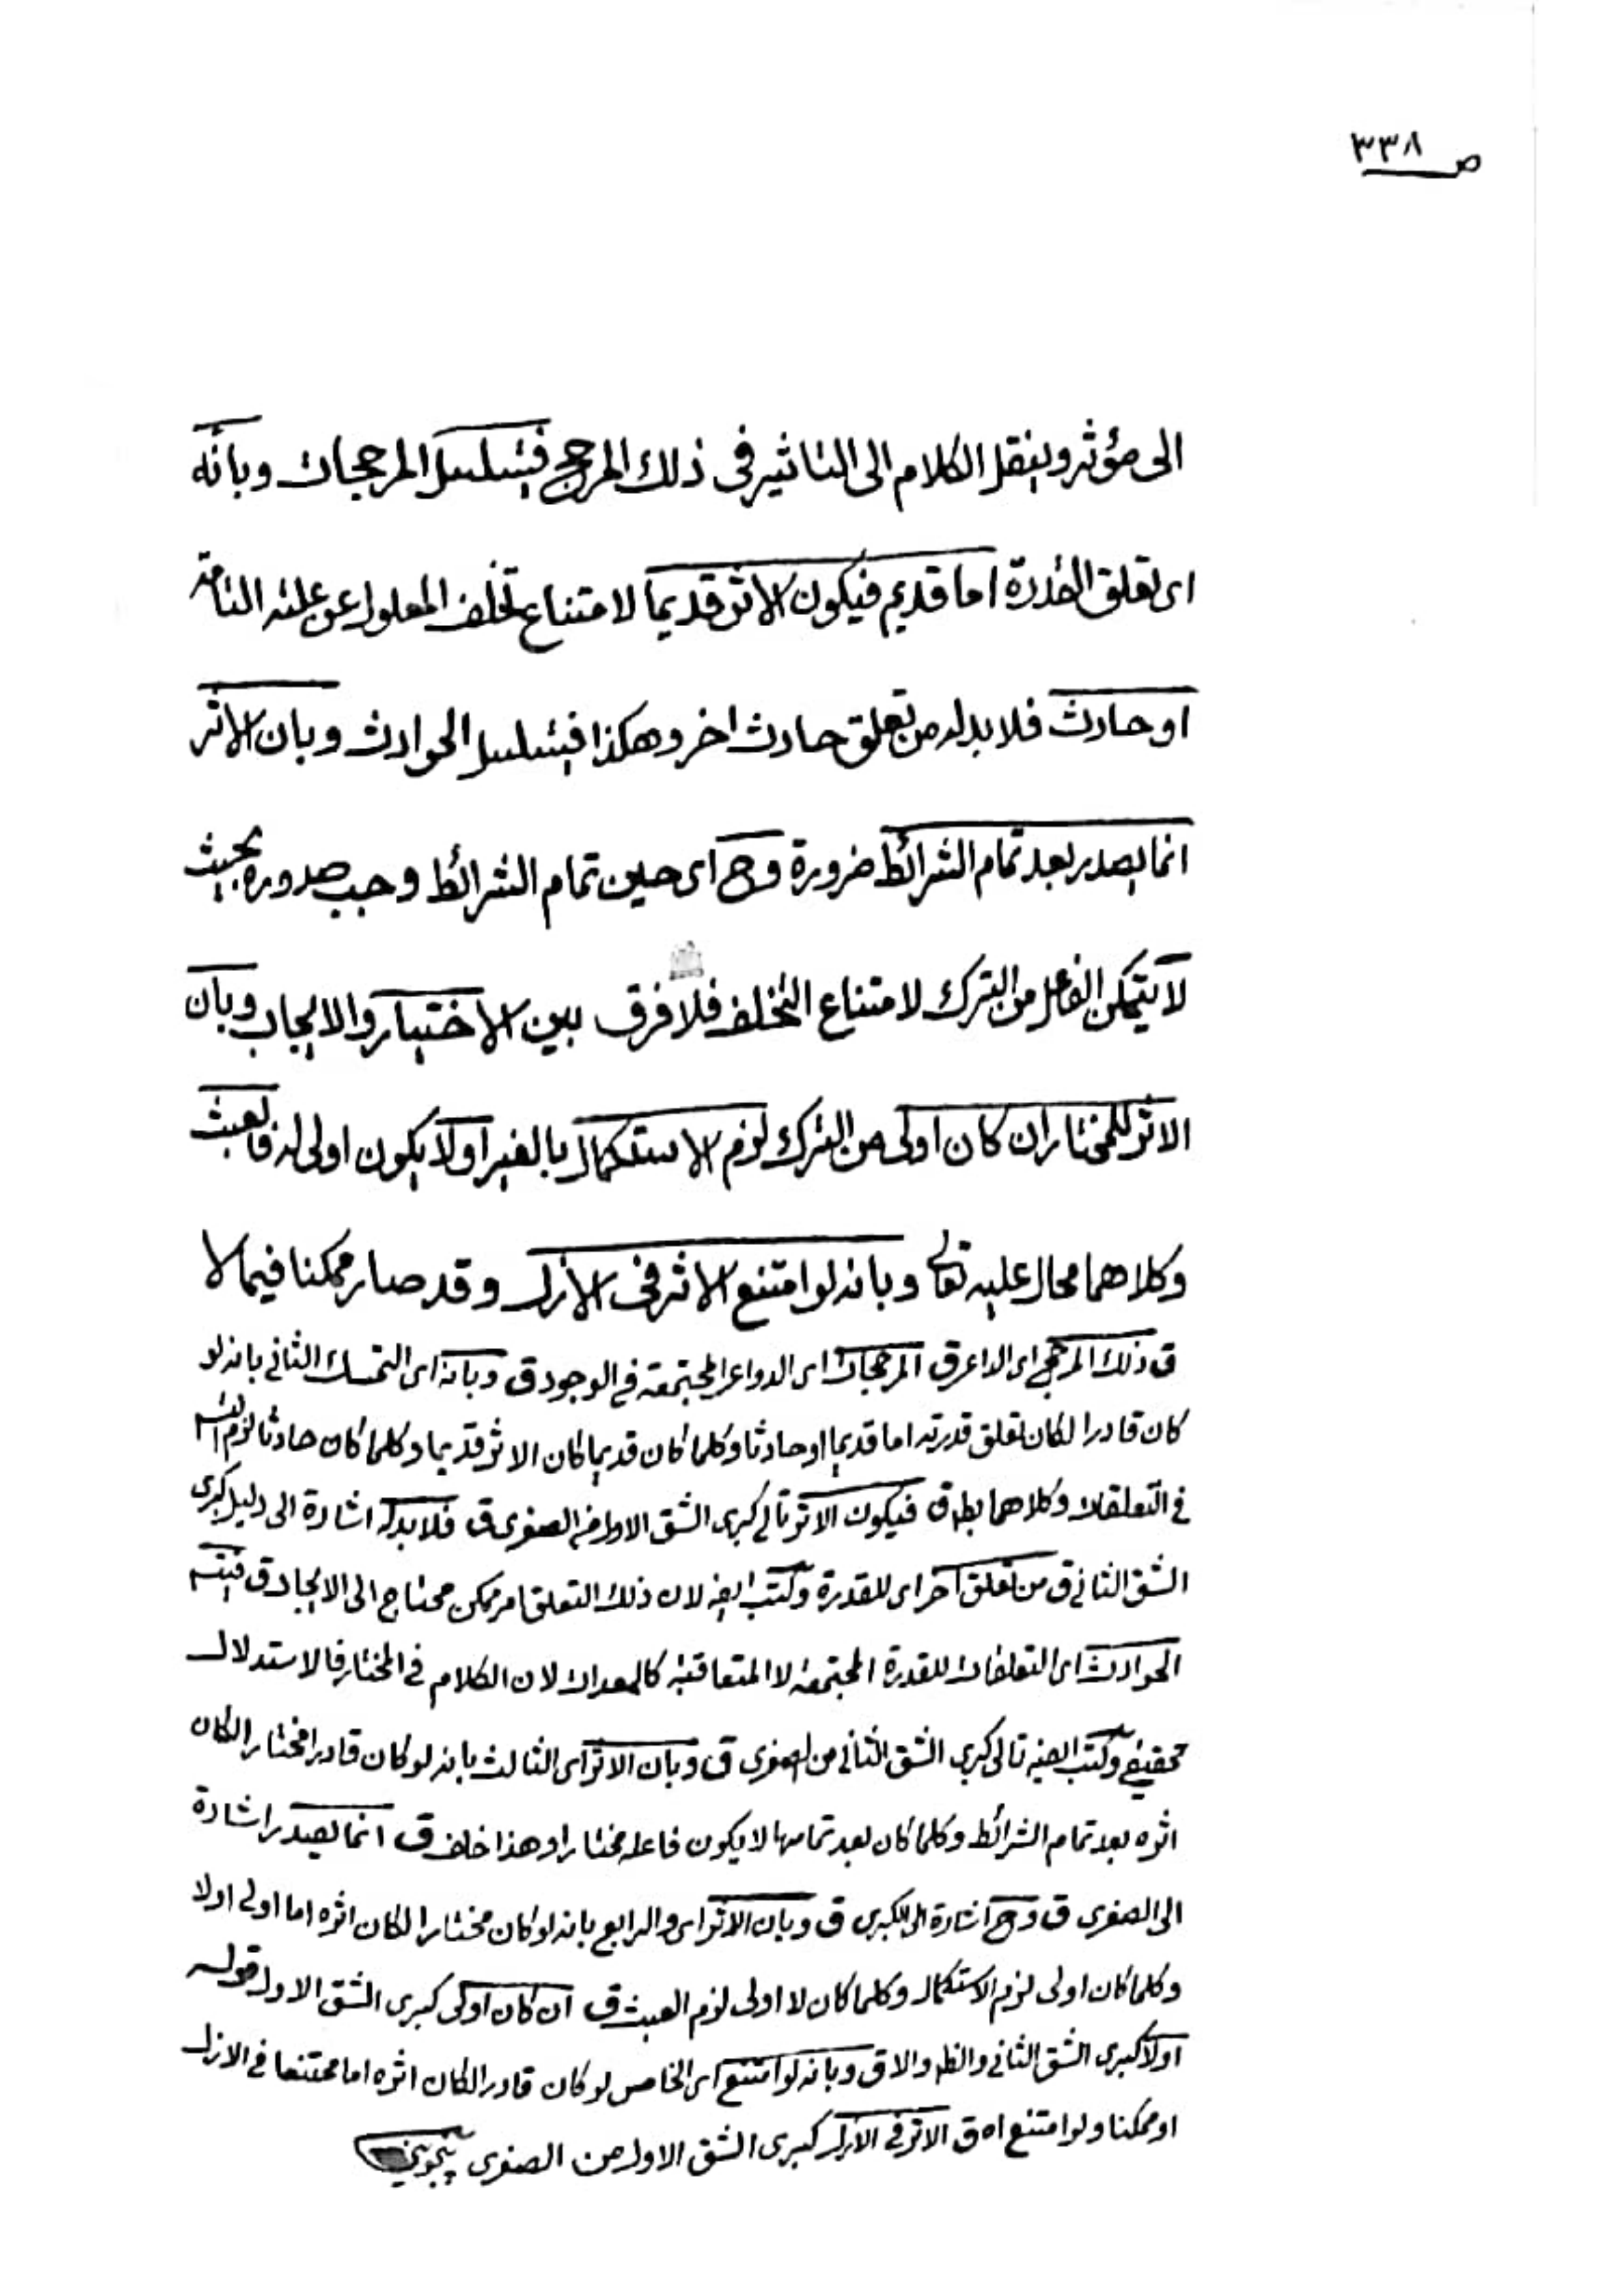 ص ٣٣٨
الى مؤثر وينقل الكلام الى التاثير فى ذلك المرجح فيتسلسل المرجحات وبانّه
اى تعلق القدرة اما قديم فيكون الاثر قديما لامتناع تخلف المعلول عن علته التامة
او حادث فلا بد له من تعلق حادث اخر وهكذا فيتسلسل الحوادث وبان الاثر
انما يصدر بعد تمام الشرائط ضرورة وح اى حين تمام الشرائط وجب صدوره بحيث
لا يتمكن الفاعل من الترك لامتناع التخلف فلا فرق بين الاختيار والايجاب وبان
الاثر للمختار ان كان اولى من الترك لزم الاستكمال بالغير او لا يكون اولى له فالعبث
وكلاهما محال عليه تعالى وبانه لو امتنع الاثر فى الازل وقد صار ممكنا فيما لا
ق ذلك المرجح اى الداعى ق المرجحات اى الدواعى المجتمعة فى الوجود ق وبانه اى التمسك الثانى بانه لو
كان قادرا لكان تعلق قدرته اما قديما او حادثا وكلما كان قديما كان الاثر قديما وكلما كان حادثا لزم التسـ
فى التعلقات وكلاهما بط ق فيكون الاثر تالى كبرى الشق الاول من الصغرى ق فلا بد له اشارة الى دليل كبرى
الشق الثانى ق من تعلق اخر اى للقدرة وكتب ايضا لان ذلك التعلق امر ممكن محتاج الى الايجاد ق فيتسـ
الحوادث اى التعلقات للقدرة المجتمعة لا المتعاقبة كالمعدات لان الكلام فى المختار فالاستدلال
تحقيقى وكتب ايضا تالى كبرى الشق الثانى من الصغرى ق وبان الاثر اى الثالث بانه لو كان قادرا مختارا لكان
اثره بعد تمام الشرائط وكلما كان بعد تمامها لا يكون فاعله مختارا وهذا خلف ق انما يصدر اشارة
الى الصغرى ق وح اشارة الى الكبرى ق وبان الاثر اى والرابع بانه لو كان مختارا لكان اثره اما اولى او لا
وكلما كان اولى لزم الاستكمال وكلما كان لا اولى لزم العبث ق ان كان اولى كبرى الشق الاول قوله
او لا كبرى الشق الثانى والظ والا ق وبانه لو امتنع اى الخامس لو كان قادرا لكان اثره اما ممتنعا فى الازل
او ممكنا ولو امتنع اه ق الاثر فى الازل كبرى الشق الاول من الصغرى پنجوينى